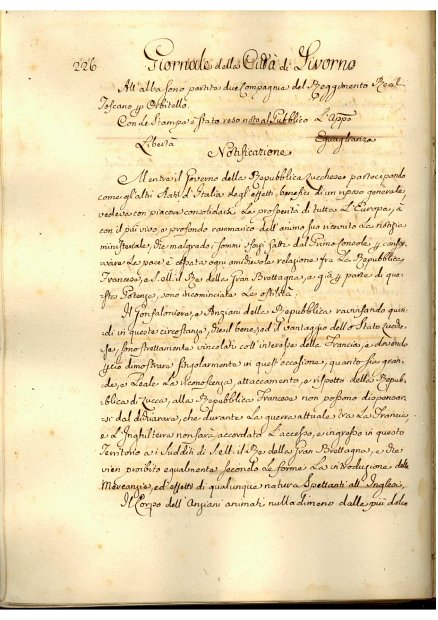 226 Giornale della Città di Livorno
All'alba sono partite due Compagnie del Reggimento Real
Toscano p Orbitello.
Con le Stampe è stato reso noto al Pubblico L'appo
Libertà Eguaglianza
Notificazione
Mentre il Governo della Repubblica Lucchese partecipando
come gl'altri Stati d'Italia degl'effetti benefici di un riposo generale
vedeva con piacere consolidarsi la prosperità di tutta L'Europa, à
con il più vivo e profondo rammarico dell'animo suo ricevuto La notizia
ministeriale, che malgrado i sommi sforzi fatti dal Primo Console p conser,
vare La pace è cessata ogni amichevole relazione fra La Repubblica
Francese, e S. M. il Re della Gran Brettagna, e già p parte di que,
ste Potenze, sono incominciate Le ostilità:
Il Gonfaloniere, e Anziani della Repubblica ravvisando quin,
di in queste circostanze, che il bene, ed il vantaggio dello Stato Lucche,
se, sono strettamente vincolati coll'interesse della Francia, e dovendo
p ciò dimostrare singolarmente in quest'occasione, quanto sia gran,
de, e Leale La riconoscenza, attaccamento, e rispetto della Repub,
blica di Lucca, alla Repubblica Francese non possono dispensar,
si dal dichiarare, che durante La guerra attuale tra La Francia,
e L'Inghilterra non sarà accordato L'accesso, e ingresso in questo
Territorio a i Sudditi di S. M. il Re della Gran Brettagna, e che
vien proibito egualmente secondo Le forme La introduzione delle
Mercanzie, ed effetti di qualunque natura Spettanti all'Inglesi,
Il Corpo dell'Anziani animati nulladimeno dalle più dolce